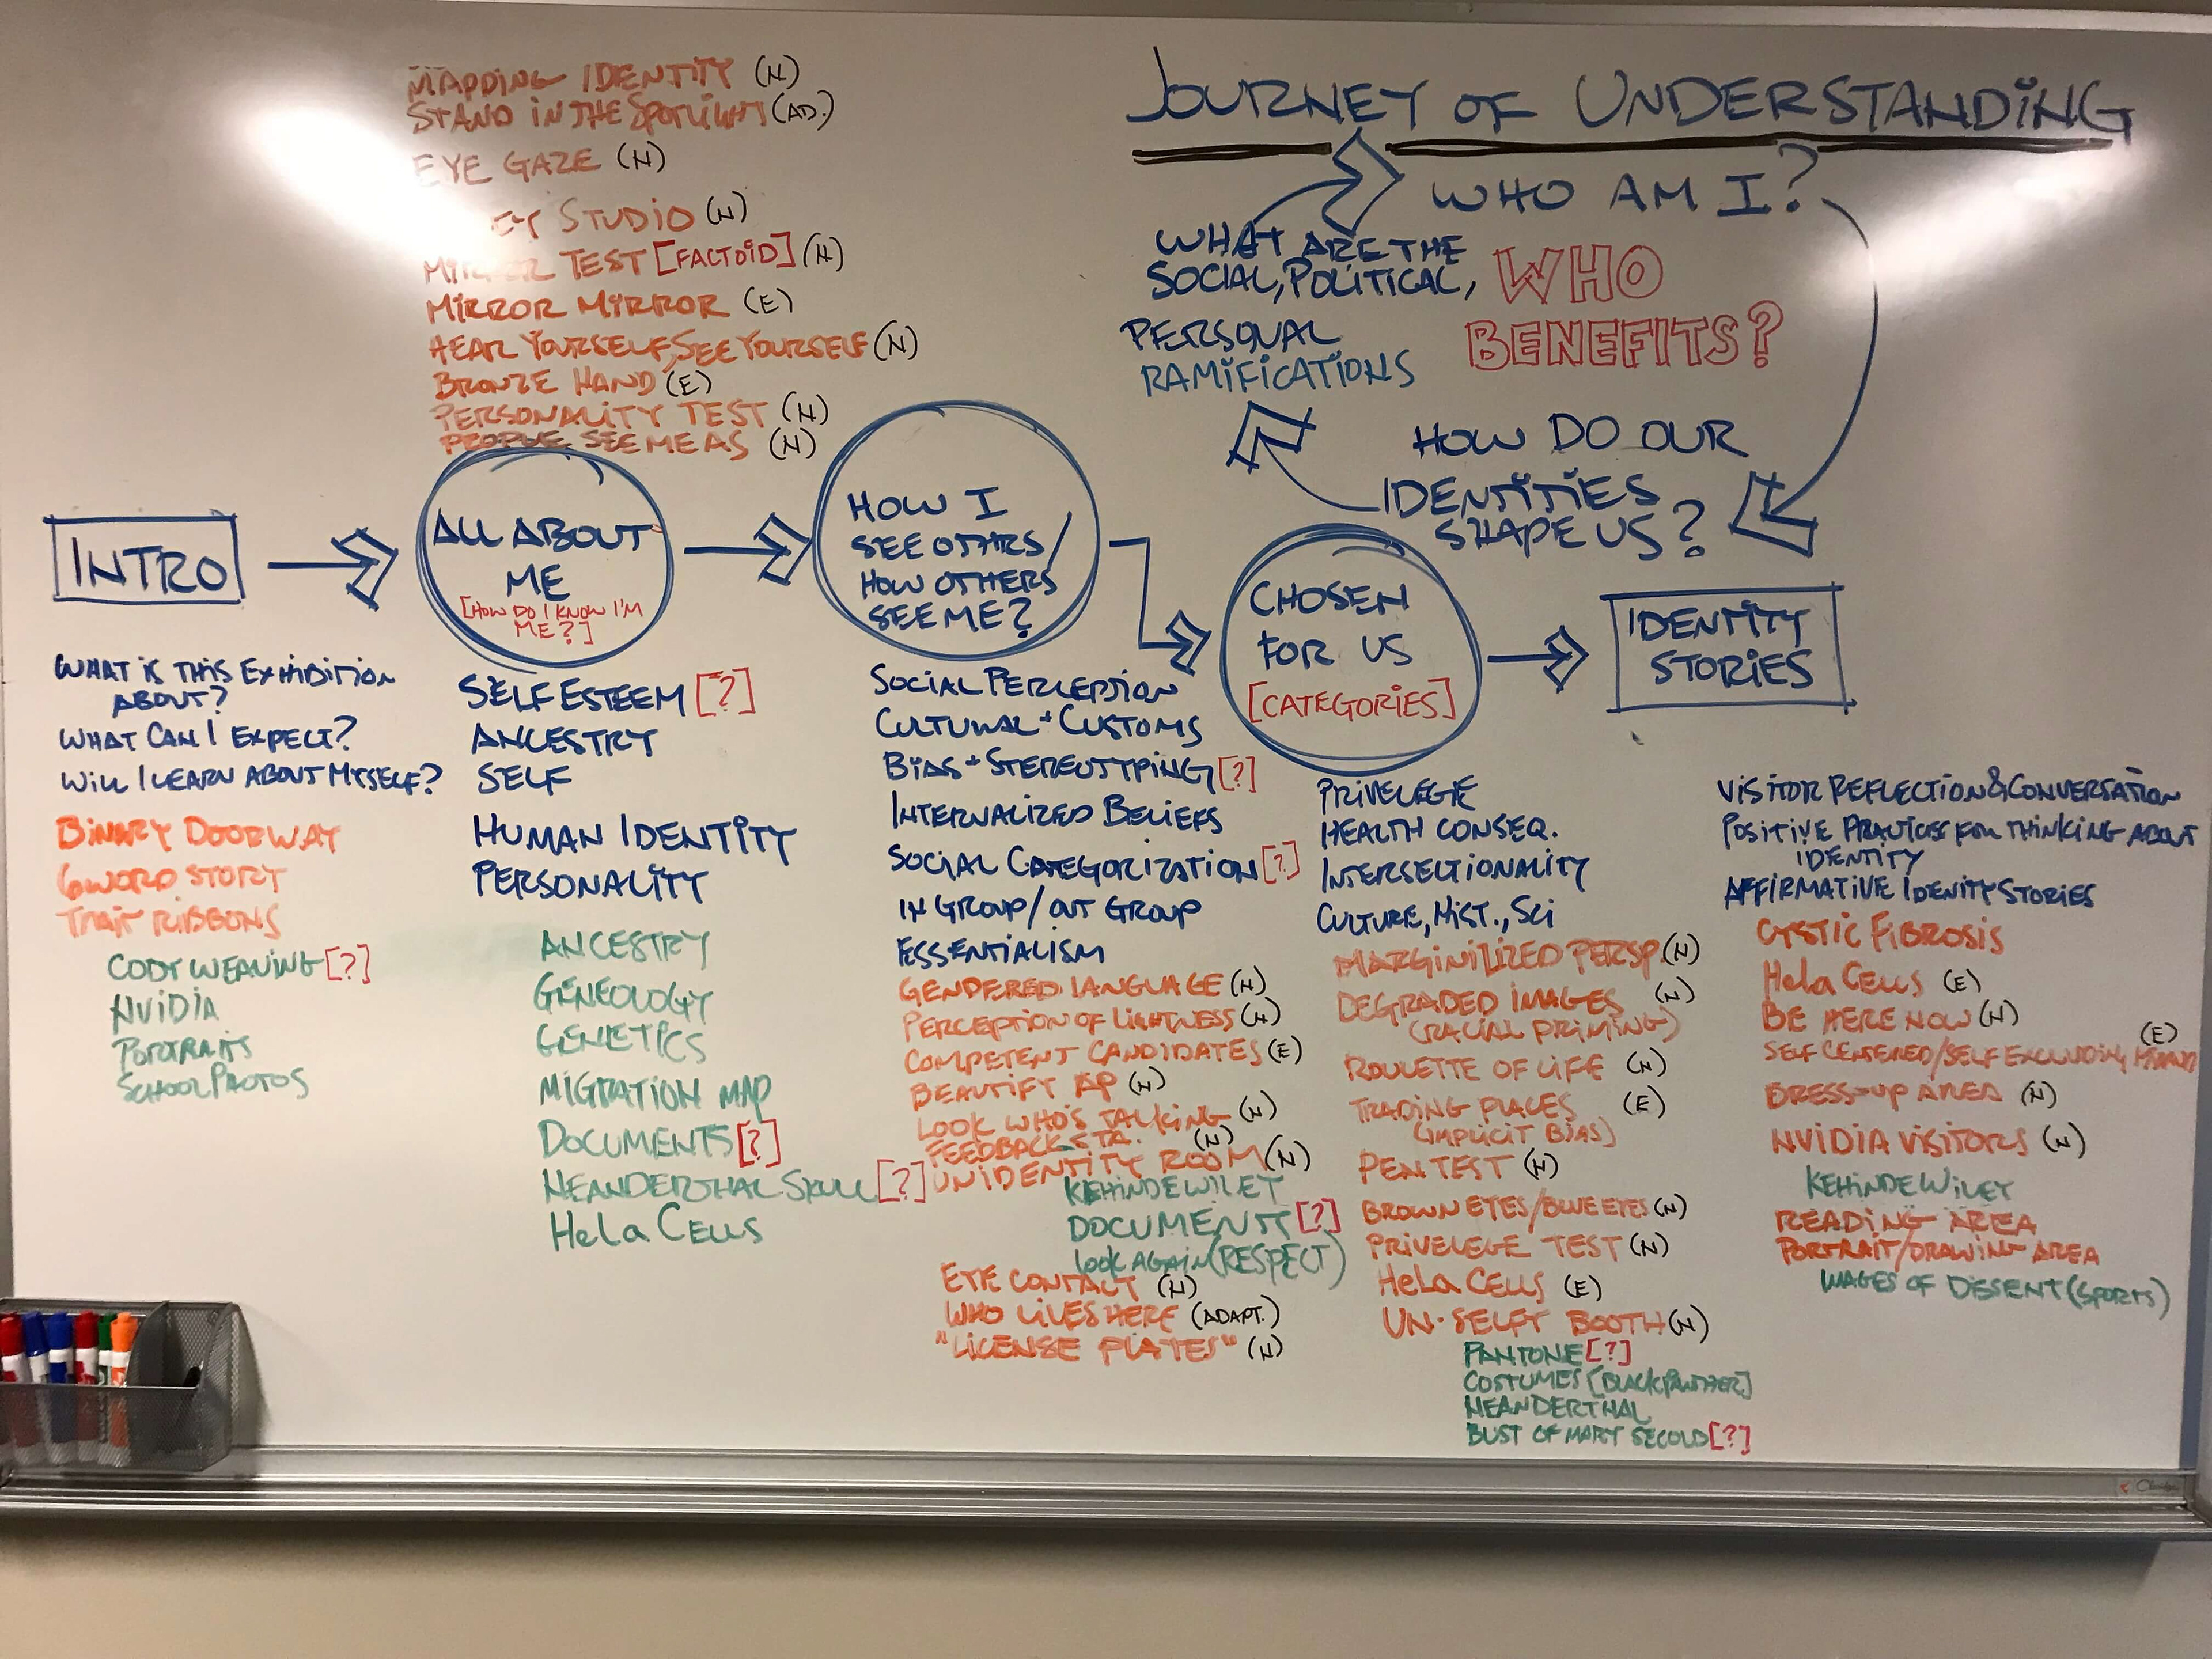 MAPPING IDENTITY (N)
STAND IN THE SPOTLIGHT (AD.)
EYE GAZE (N)
STUDIO (N)
MIRROR TEST [FACTOID] (N)
MIRROR MIRROR (E)
HEAR YOURSELF, SEE YOURSELF (N)
BRONZE HAND (E)
PERSONALITY TEST (N)
PEOPLE SEE ME AS (N)
JOURNEY OF UNDERSTANDING
WHO AM I?
WHAT ARE THE
SOCIAL, POLITICAL,
PERSONAL
RAMIFICATIONS
WHO
BENEFITS?
HOW DO OUR
IDENTITIES
SHAPE US?
INTRO
WHAT IS THIS EXHIBITION
ABOUT?
WHAT CAN I EXPECT?
WILL I LEARN ABOUT MYSELF?
BINARY DOORWAY
6 WORD STORY
TRAIT RIBBONS
CODY WEAVING [?]
NVIDIA
PORTRAITS
SCHOOL PHOTOS
ALL ABOUT
ME
[HOW DO I KNOW I'M
ME?]
SELF ESTEEM [?]
ANCESTRY
SELF
HUMAN IDENTITY
PERSONALITY
ANCESTRY
GENEOLOGY
GENETICS
MIGRATION MAP
DOCUMENTS [?]
NEANDERTHAL SKULL [?]
HeLa CELLS
HOW I
SEE OTHRS/
HOW OTHERS
SEE ME?
SOCIAL PERCEPTION
CULTURAL + CUSTOMS
BIAS + STEREOTYPING [?]
INTERNALIZED BELIEFS
SOCIAL CATEGORIZATION [?]
IN GROUP/OUT GROUP
ESSENTIALISM
GENDERED LANGUAGE (N)
PERCEPTION OF LIGHTNESS (N)
COMPETENT CANDIDATES (E)
BEAUTIFY AP (N)
LOOK WHO'S TALKING (N)
FEEDBACK STA. (N)
UNIDENTITY ROOM (N)
KEHINDE WILEY
DOCUMENTS [?]
LOOK AGAIN (RESPECT)
EYE CONTACT (N)
WHO LIVES HERE (ADAPT.)
"LICENSE PLATES" (N)
CHOSEN
FOR US
[CATEGORIES]
PRIVELEGE
HEALTH CONSEQ.
INTERSECTIONALITY
CULTURE, HIST., SCI
MARGINILIZED PERSP. (N)
DEGRADED IMAGES (N)
(RACIAL PRIMING)
ROULETTE OF LIFE (N)
TRADING PLACES (E)
(IMPLICIT BIAS)
PEN TEST (N)
BROWN EYES/BLUE EYES (N)
PRIVELEGE TEST (N)
HeLa CELLS (E)
UN-SELFY BOOTH (N)
PANTONE [?]
COSTUMES [BLACK PANTHER]
NEANDERTHAL
BUST OF MARY SECOLD [?]
IDENTITY
STORIES
VISITOR REFLECTION & CONVERSATION
POSITIVE PRACTICES FOR THINKING ABOUT
IDENTITY
AFFIRMATIVE IDENTITY STORIES
CYSTIC FIBROSIS
HeLa CELLS (E)
BE HERE NOW (N)
(E)
SELF CENTERED/SELF EXCLUDING
DRESS-UP AREA (N)
NVIDIA VISITORS (N)
KEHINDE WILEY
READING AREA
PORTRAIT/DRAWING AREA
IMAGES OF DISSENT (SPORTS)